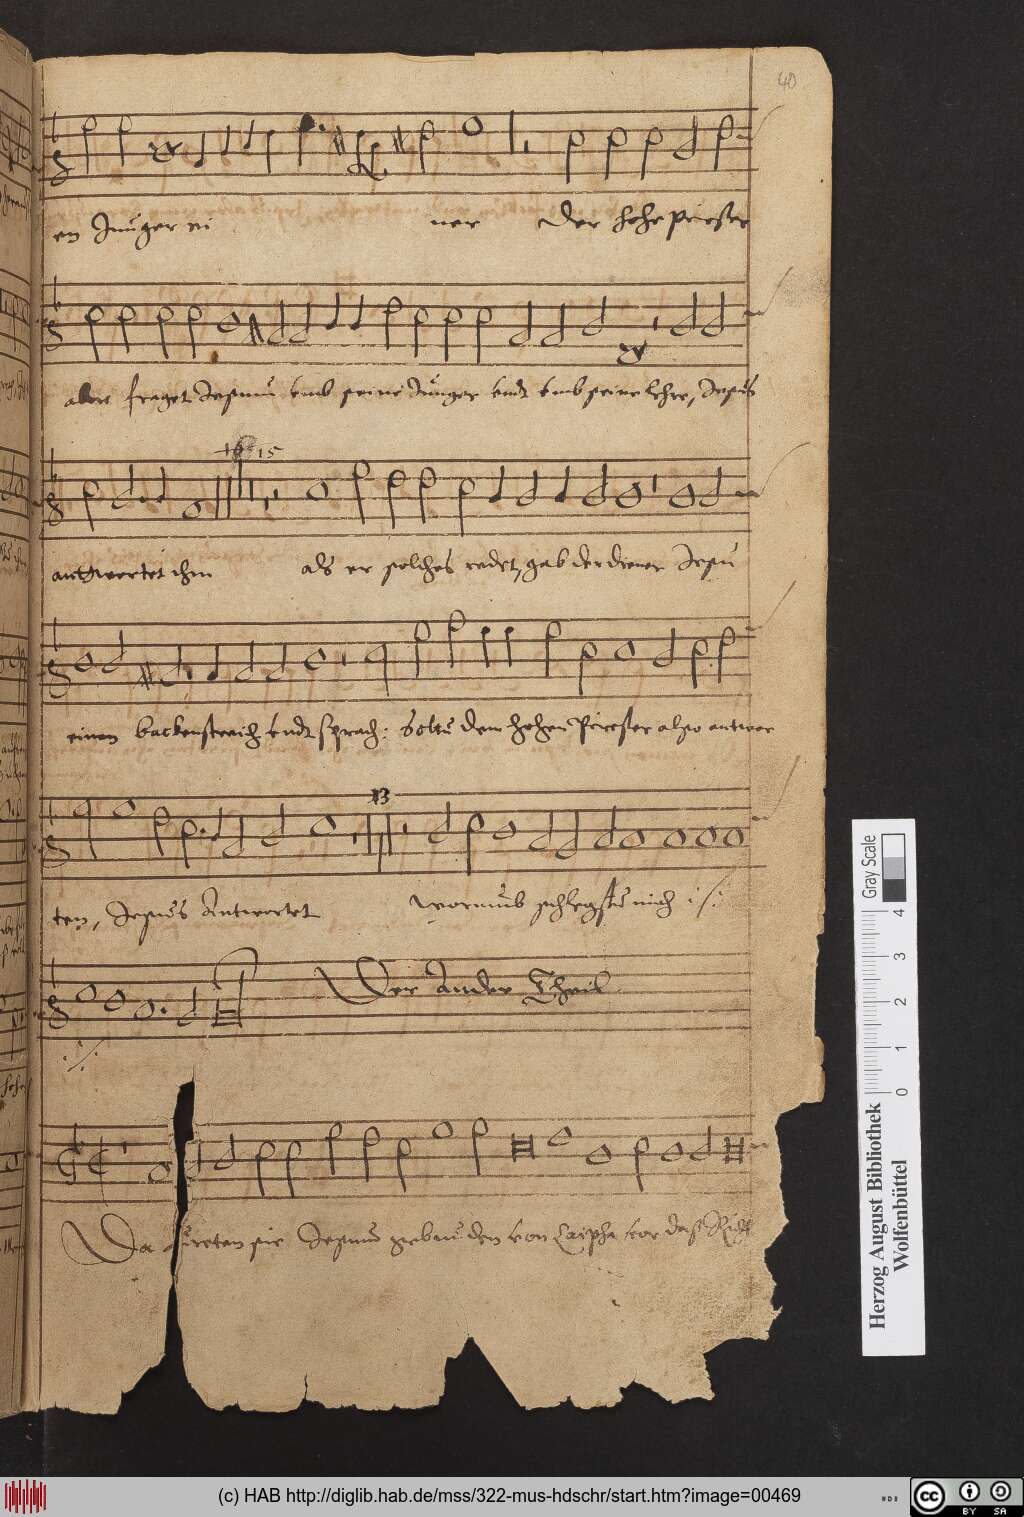 40
en Jünger ei ner Der hohe priester
aber fraget Jesum umb seine Jünger undt umb seine lehre, Jesus
15
antwortet ihm als er solches redet, gab der diener Jesu
einen backenstreich undt sprach: Soltu dem hohen Priester also antwor
13
ten, Jesus Antwortet worumb schlegstu mich
Der Ander Theil
Da füreten sie Jesum gebunden von Caipha vor das Richt
Gray Scale
0 1 2 3 4
Herzog August Bibliothek
Wolfenbüttel
(c) HAB http://diglib.hab.de/mss/322-mus-hdschr/start.htm?image=00469
cc BY SA